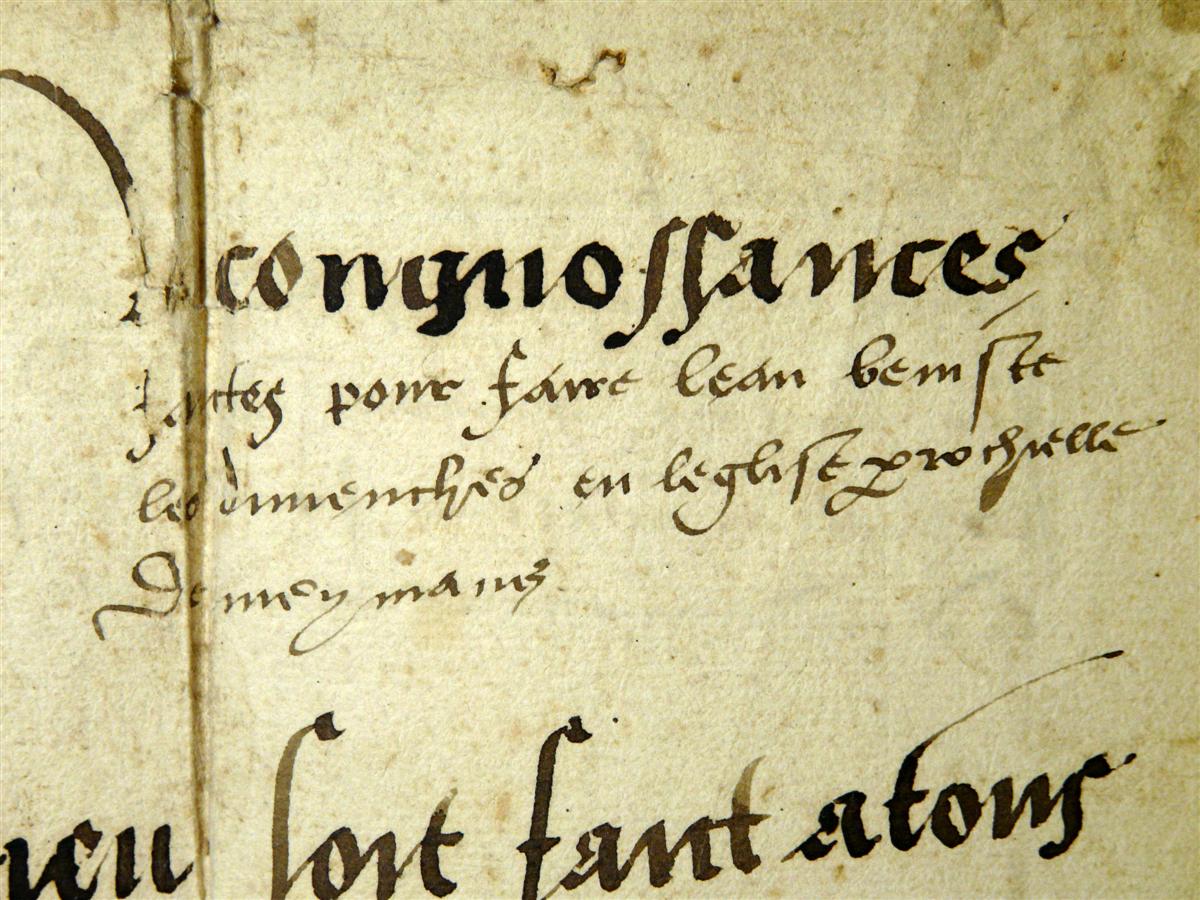 congnossances
factes pour faire leau beniste
les dimenches en leglise prochielle
de meymans
soit faict a tous